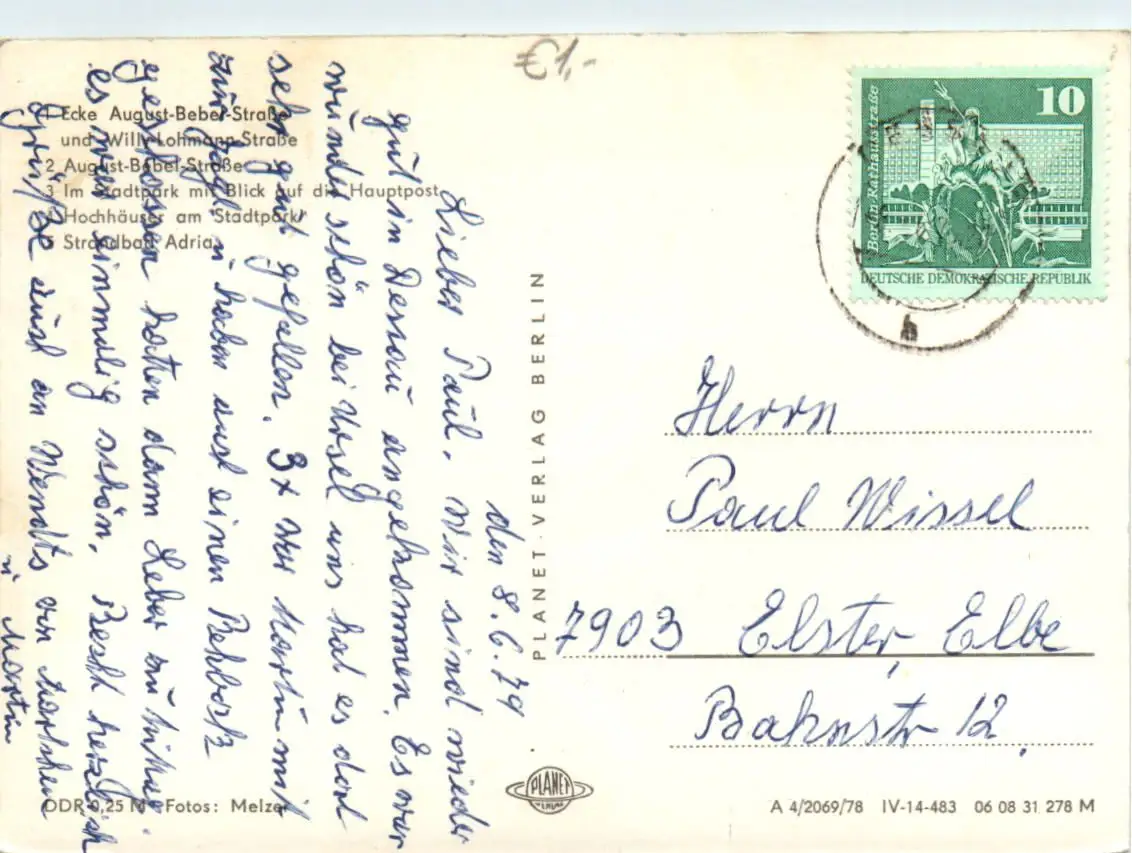 €1,-
1 Ecke August-Bebel-Straße
und Willy-Lohmann-Straße
2 August-Bebel-Straße
3 Im Stadtpark mit Blick auf die Hauptpost
4 Hochhäuser am Stadtpark
5 Strandbad Adria
den 8.6.79
Lieber Paul. Wir sind wieder
gut in Dessau angekommen. Es war
wunderschön bei Ursel uns hat es dort
sehr gut gefallen. 3x war Martin mit
zur Jagd u haben auch einen Rehbock
geschossen hatten dann Leber zu
es war einmalig schön. Recht herzlich
Grüße auch an Wendts von
u Martin
PLANET-VERLAG BERLIN
10
Berlin-Rathausstraße
DEUTSCHE DEMOKRATISCHE REPUBLIK
b
Herrn
Paul Wissel
7903 Elster, Elbe
Bahnstr 12.
DDR 0,25 M Fotos: Melzer
PLANET
VERLAG
A 4/2069/78 IV-14-483 06 08 31 278 M